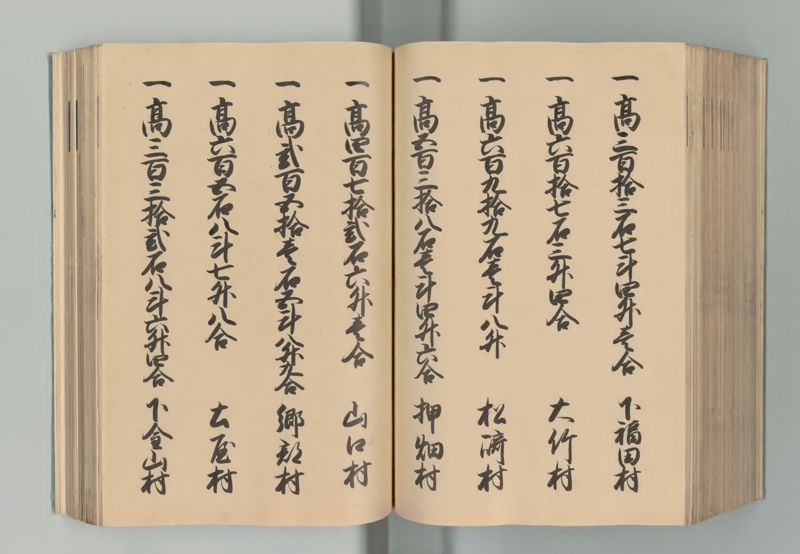 一 高三百拾三石七斗四升壱合 下福田村
一 高六百拾七石三升四合 大竹村
一 高六百九拾九石壱斗八升 松崎村
一 高五百三拾八石壱斗四升六合 押畑村
一 高四百七拾弐石六升壱合 山口村
一 高弐百五拾壱石五斗八升九合 郷部村
一 高六百五石八斗七升八合 土屋村
一 高三百三拾弐石八斗六升四合 下金山村